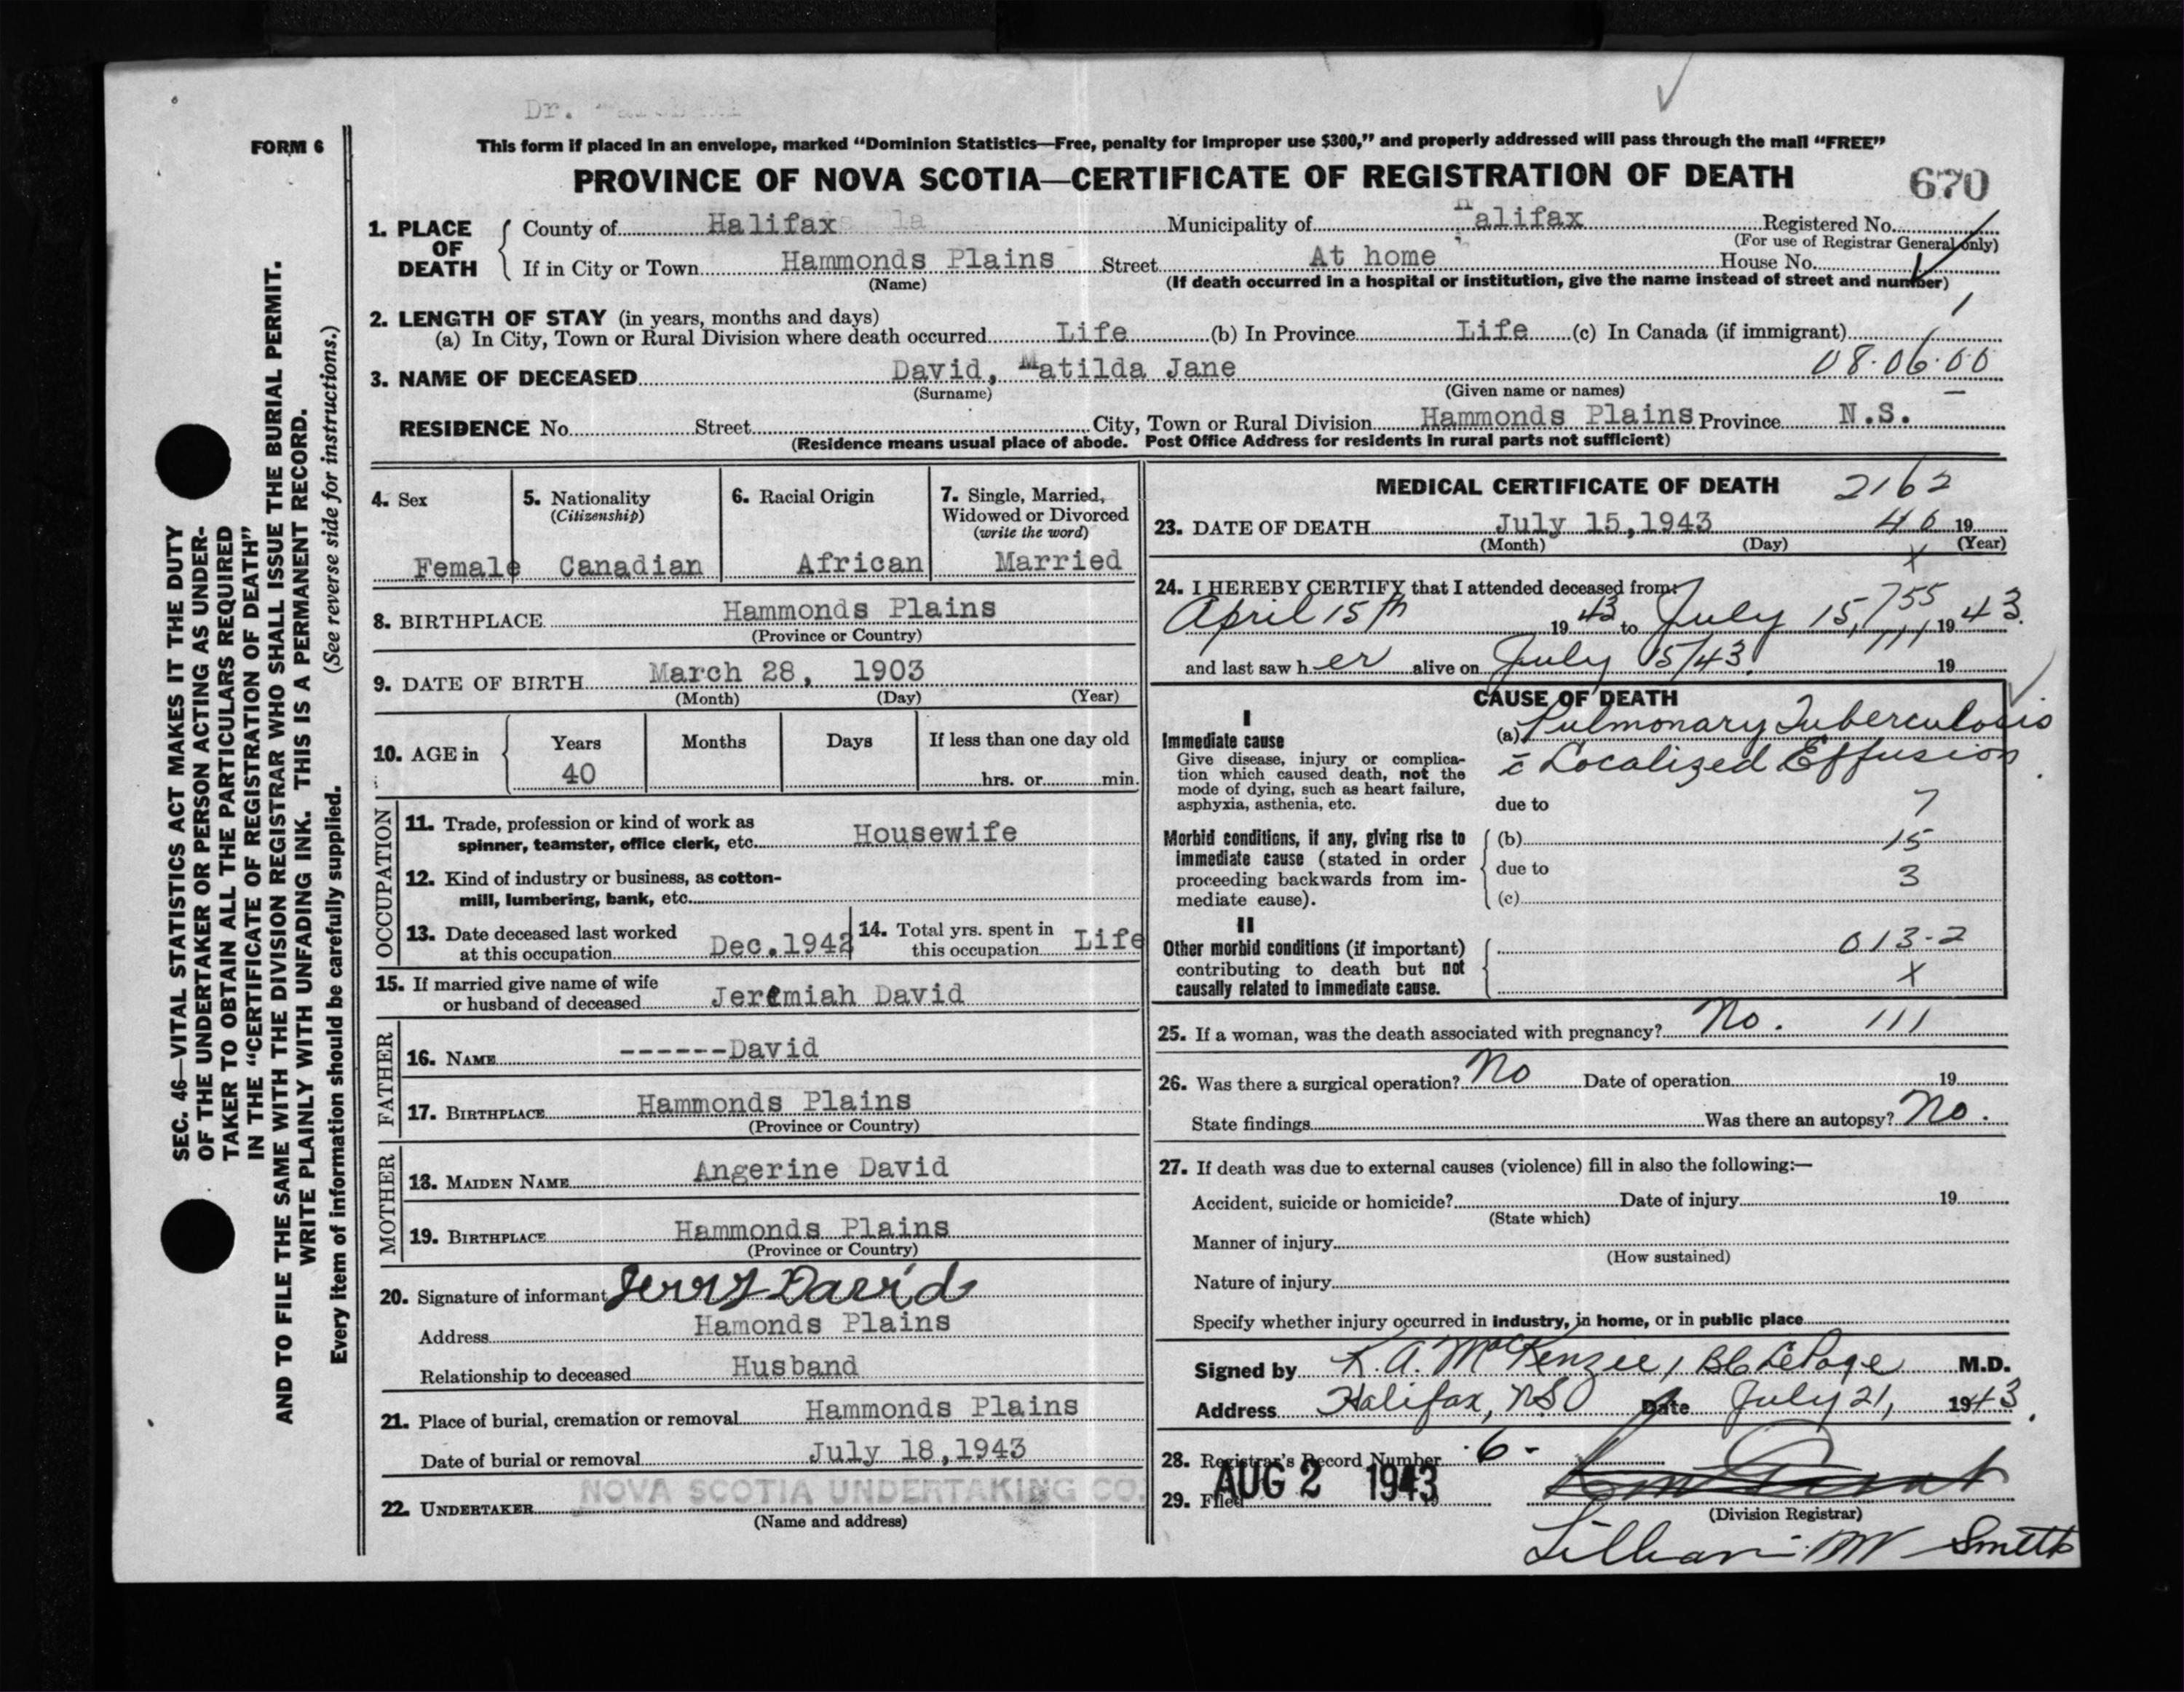 Dr.
FORM 6
This form if placed in an envelope, marked “Dominion Statistics—Free, penalty for improper use $300,” and properly addressed will pass through the mail “FREE”
PROVINCE OF NOVA SCOTIA—CERTIFICATE OF REGISTRATION OF DEATH 670
1. PLACE OF DEATH County of Halifax Municipality of Halifax Registered No.
(For use of Registrar General only)
If in City or Town Hammonds Plains Street At home House No.
(Name) (If death occurred in a hospital or institution, give the name instead of street and number)
2. LENGTH OF STAY (in years, months and days)
(a) In City, Town or Rural Division where death occurred Life (b) In Province Life (c) In Canada (if immigrant)
3. NAME OF DECEASED David, Matilda Jane 08.06.00
(Surname) (Given name or names)
RESIDENCE No. Street City, Town or Rural Division Hammonds Plains Province N.S.
(Residence means usual place of abode. Post Office Address for residents in rural parts not sufficient)
4. Sex 5. Nationality (Citizenship) 6. Racial Origin 7. Single, Married, Widowed or Divorced (write the word)
Female Canadian African Married
8. BIRTHPLACE Hammonds Plains
(Province or Country)
9. DATE OF BIRTH March 28, 1903
(Month) (Day) (Year)
10. AGE in Years Months Days If less than one day old
40 hrs. or min.
OCCUPATION
11. Trade, profession or kind of work as
spinner, teamster, office clerk, etc. Housewife
12. Kind of industry or business, as cotton-
mill, lumbering, bank, etc.
13. Date deceased last worked
at this occupation Dec.1942
14. Total yrs. spent in
this occupation Life
15. If married give name of wife
or husband of deceased Jeremiah David
FATHER
16. NAME ------David
17. BIRTHPLACE Hammonds Plains
(Province or Country)
MOTHER
18. MAIDEN NAME Angerine David
19. BIRTHPLACE Hammonds Plains
(Province or Country)
20. Signature of informant Jerry David
Address Hamonds Plains
Relationship to deceased Husband
21. Place of burial, cremation or removal Hammonds Plains
Date of burial or removal July 18,1943
22. UNDERTAKER NOVA SCOTIA UNDERTAKING CO.
(Name and address)
MEDICAL CERTIFICATE OF DEATH 2162
23. DATE OF DEATH July 15,1943 40 19
(Month) (Day) (Year)
X
24. I HEREBY CERTIFY that I attended deceased from:
April 15th 19 43 to July 15, 755 19 43.
111
and last saw h er alive on July 15/43. 19
CAUSE OF DEATH
I
Immediate cause
Give disease, injury or complica-
tion which caused death, not the
mode of dying, such as heart failure,
asphyxia, asthenia, etc.
(a) Pulmonary Tuberculosis
c̄ Localized Effusion
due to 7
Morbid conditions, if any, giving rise to
immediate cause (stated in order
proceeding backwards from im-
mediate cause).
(b) 15
due to 3
(c)
II
Other morbid conditions (if important)
contributing to death but not
causally related to immediate cause.
013-2
X
25. If a woman, was the death associated with pregnancy? No. 111
26. Was there a surgical operation? No Date of operation 19
State findings Was there an autopsy? No.
27. If death was due to external causes (violence) fill in also the following:—
Accident, suicide or homicide? Date of injury 19
(State which)
Manner of injury
(How sustained)
Nature of injury
Specify whether injury occurred in industry, in home, or in public place
Signed by K. A. MacKenzie, BC LePage M.D.
Address Halifax, NS Date July 21, 1943.
28. Registrar's Record Number 6-
29. Filed AUG 2 1943 19
(Division Registrar)
Lillian M Smith
SEC. 46—VITAL STATISTICS ACT MAKES IT THE DUTY
OF THE UNDERTAKER OR PERSON ACTING AS UNDER-
TAKER TO OBTAIN ALL THE PARTICULARS REQUIRED
IN THE “CERTIFICATE OF REGISTRATION OF DEATH”
AND TO FILE THE SAME WITH THE DIVISION REGISTRAR WHO SHALL ISSUE THE BURIAL PERMIT.
WRITE PLAINLY WITH UNFADING INK. THIS IS A PERMANENT RECORD.
Every item of information should be carefully supplied. (See reverse side for instructions.)